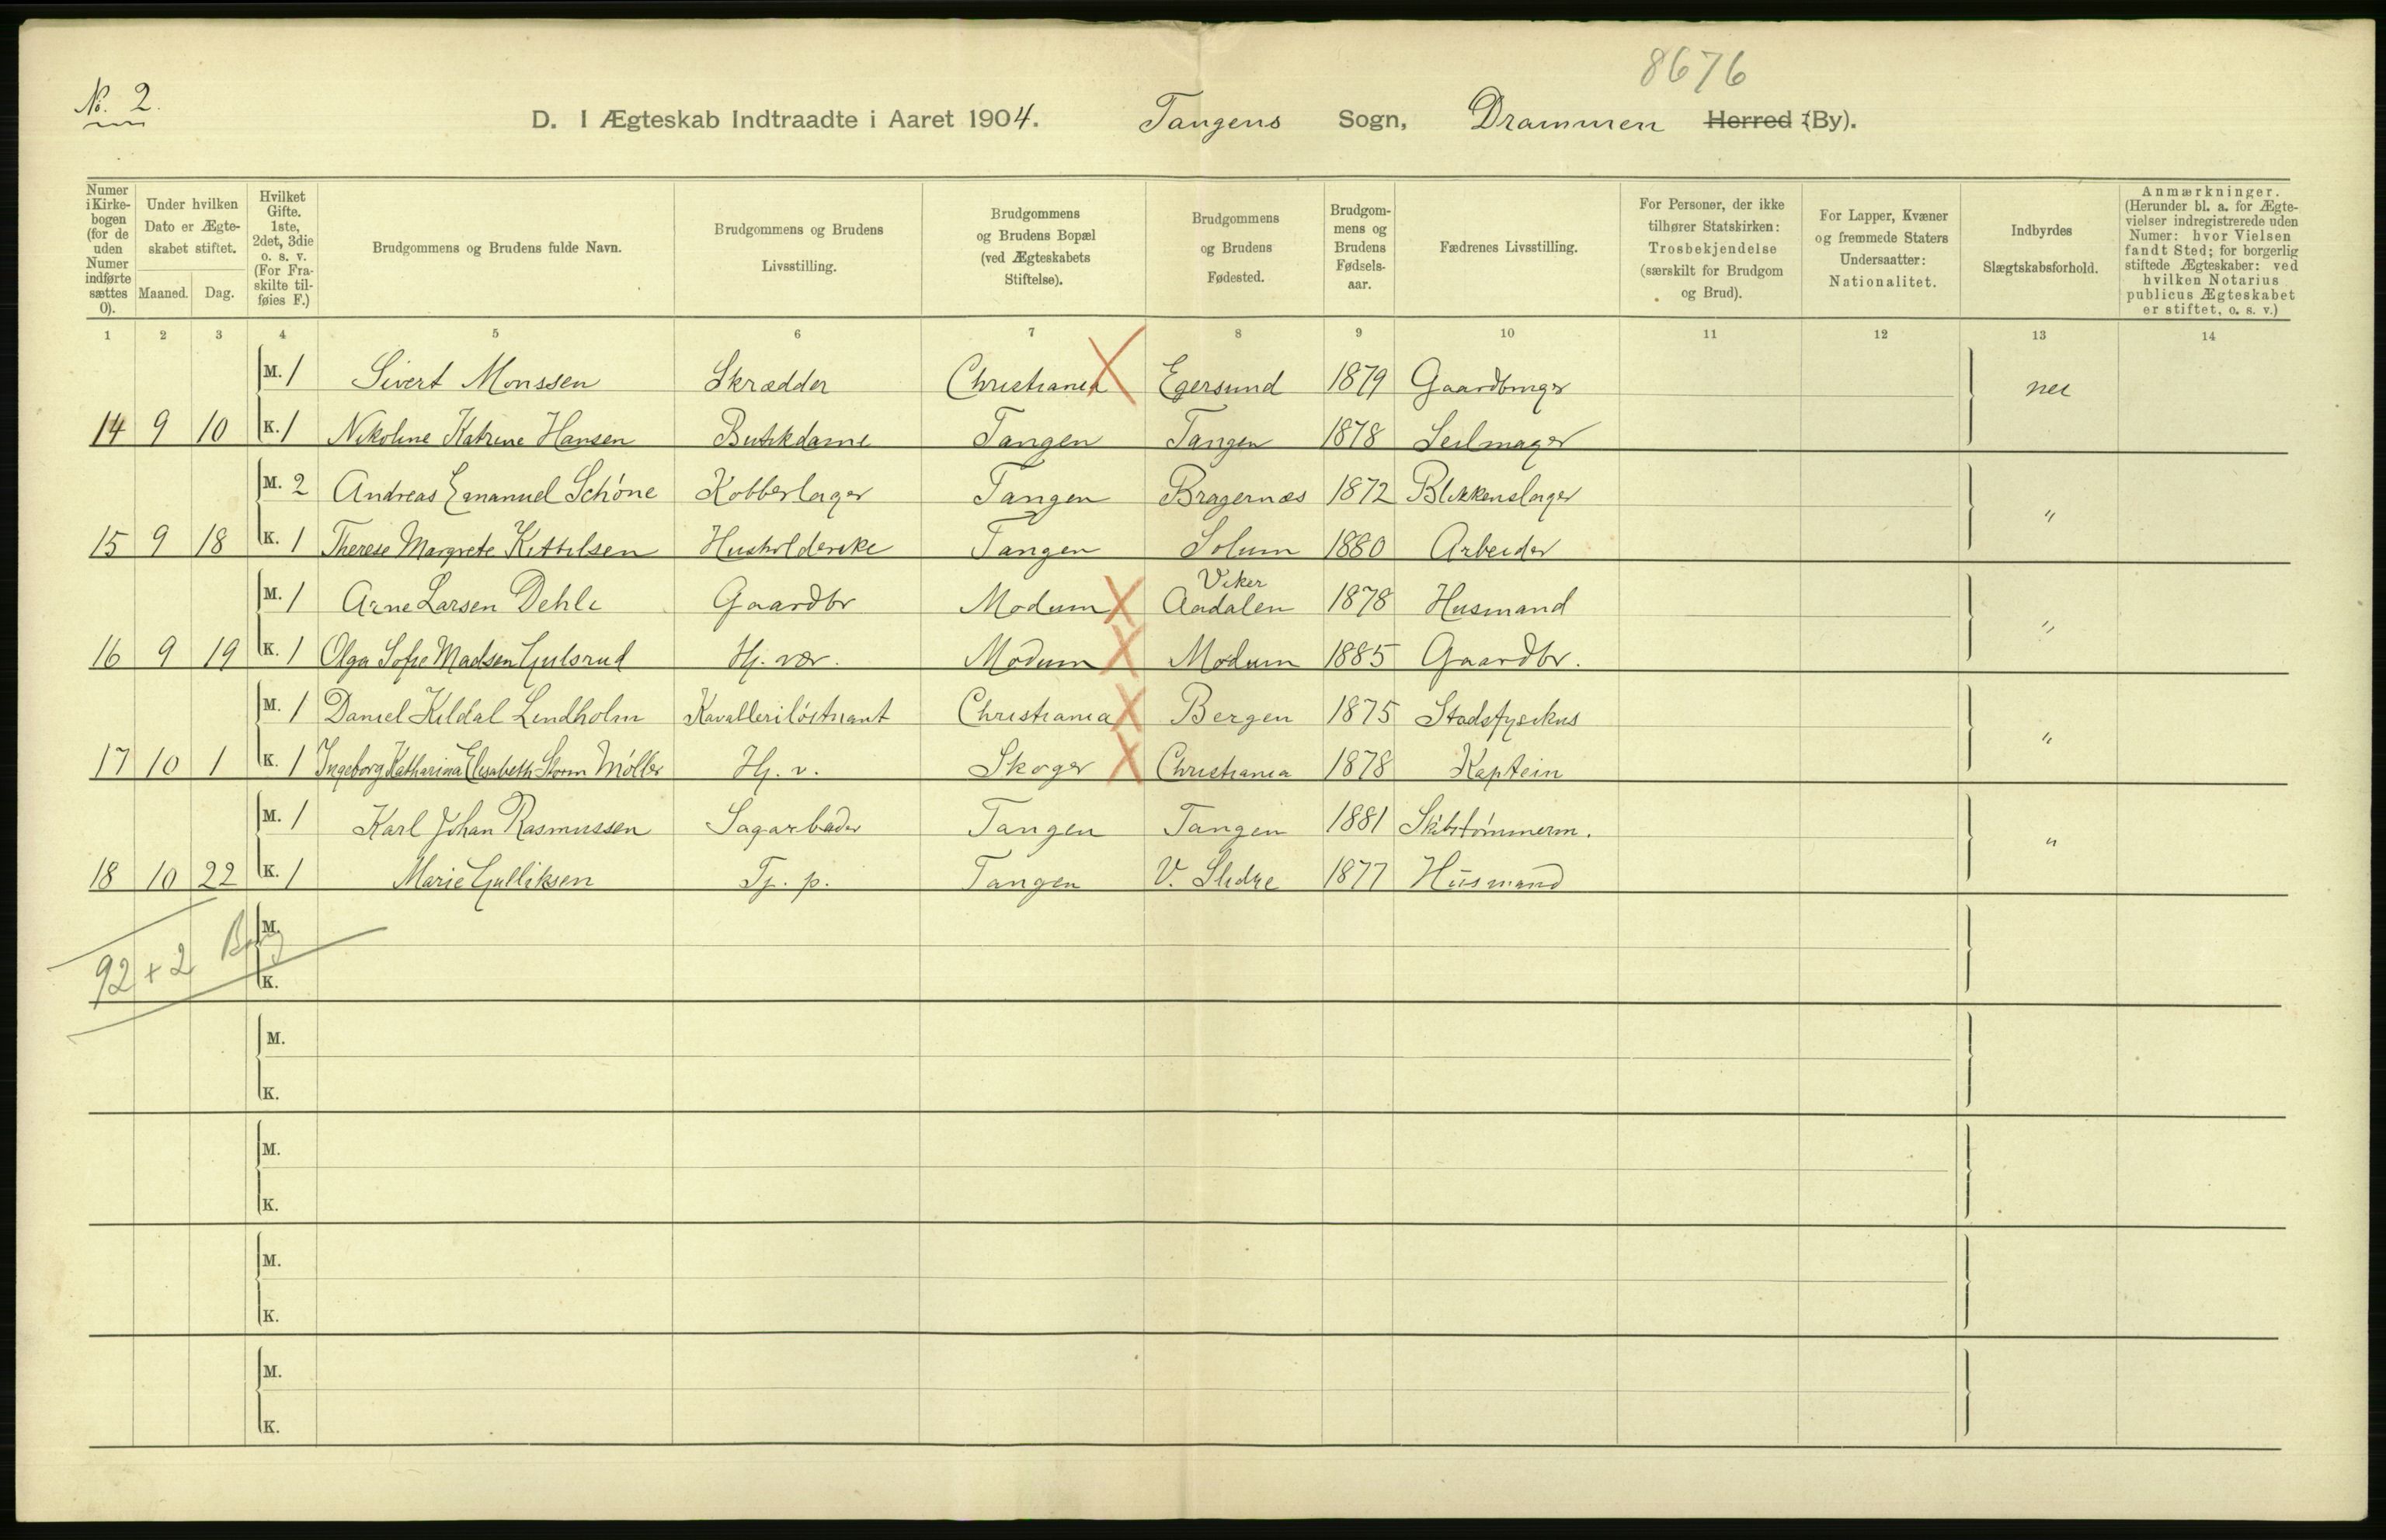 8676
No. 2.
D. I Ægteskab Indtraadte i Aaret 1904. Tangens Sogn, Drammen Herred (By).
Numer i Kirke-bogen (for de uden Numer indførte sættes 0).
Under hvilken Dato er Ægte-skabet stiftet.
Maaned. Dag.
Hvilket Gifte. 1ste, 2det, 3die o. s. v. (For Fra-skilte til-føies F.)
Brudgommens og Brudens fulde Navn.
Brudgommens og Brudens Livsstilling.
Brudgommens og Brudens Bopæl (ved Ægteskabets Stiftelse).
Brudgommens og Brudens Fødested.
Brudgom-mens og Brudens Fødsels-aar.
Fædrenes Livsstilling.
For Personer, der ikke tilhører Statskirken: Trosbekjendelse (særskilt for Brudgom og Brud).
For Lapper, Kvæner og fremmede Staters Undersaatter: Nationalitet.
Indbyrdes Slægtskabsforhold.
Anmærkninger. (Herunder bl. a. for Ægte-vielser indregistrerede uden Numer: hvor Vielsen fandt Sted; for borgerlig stiftede Ægteskaber: ved hvilken Notarius publicus Ægteskabet er stiftet, o. s. v.)
1 2 3 4 5 6 7 8 9 10 11 12 13 14
M. 1 Sivert Monssen Skrædder Christiania Egersund 1879 Gaardbruger nei
14 9 10 K. 1 Nikoline Katrine Hansen Butikdame Tangen Tangen 1878 Seilmager
M. 2 Andreas Emanuel Schöne Kobberslager Tangen Bragernæs 1872 Blikkenslager "
15 9 18 K. 1 Therese Margrete Kittilsen Husholderske Tangen Solum 1880 Arbeider
Viker
M. 1 Arne Larsen Dehli Gaardbr Modum Aadalen 1878 Husmand "
16 9 19 K. 1 Olga Sofie Madsen Gulsrud Hj. vær. Modum Modum 1885 Gaardbr.
M. 1 Daniel Kildal Lindholm Kavalleriløitnant Christiania Bergen 1875 Stadsfysikus "
17 10 1 K. 1 Ingeborg Katharina Elisabeth Storm Möller Hj. v. Skoger Christiania 1878 Kaptein
M. 1 Karl Johan Rasmussen Sagarbeider Tangen Tangen 1881 Skibstømmerm. "
18 10 22 K. 1 Marie Gulliksen Tj. p. Tangen V. Slidre 1877 Husmand
M.
92 + 2
K.
M.
K.
M.
K.
M.
K.
M.
K.